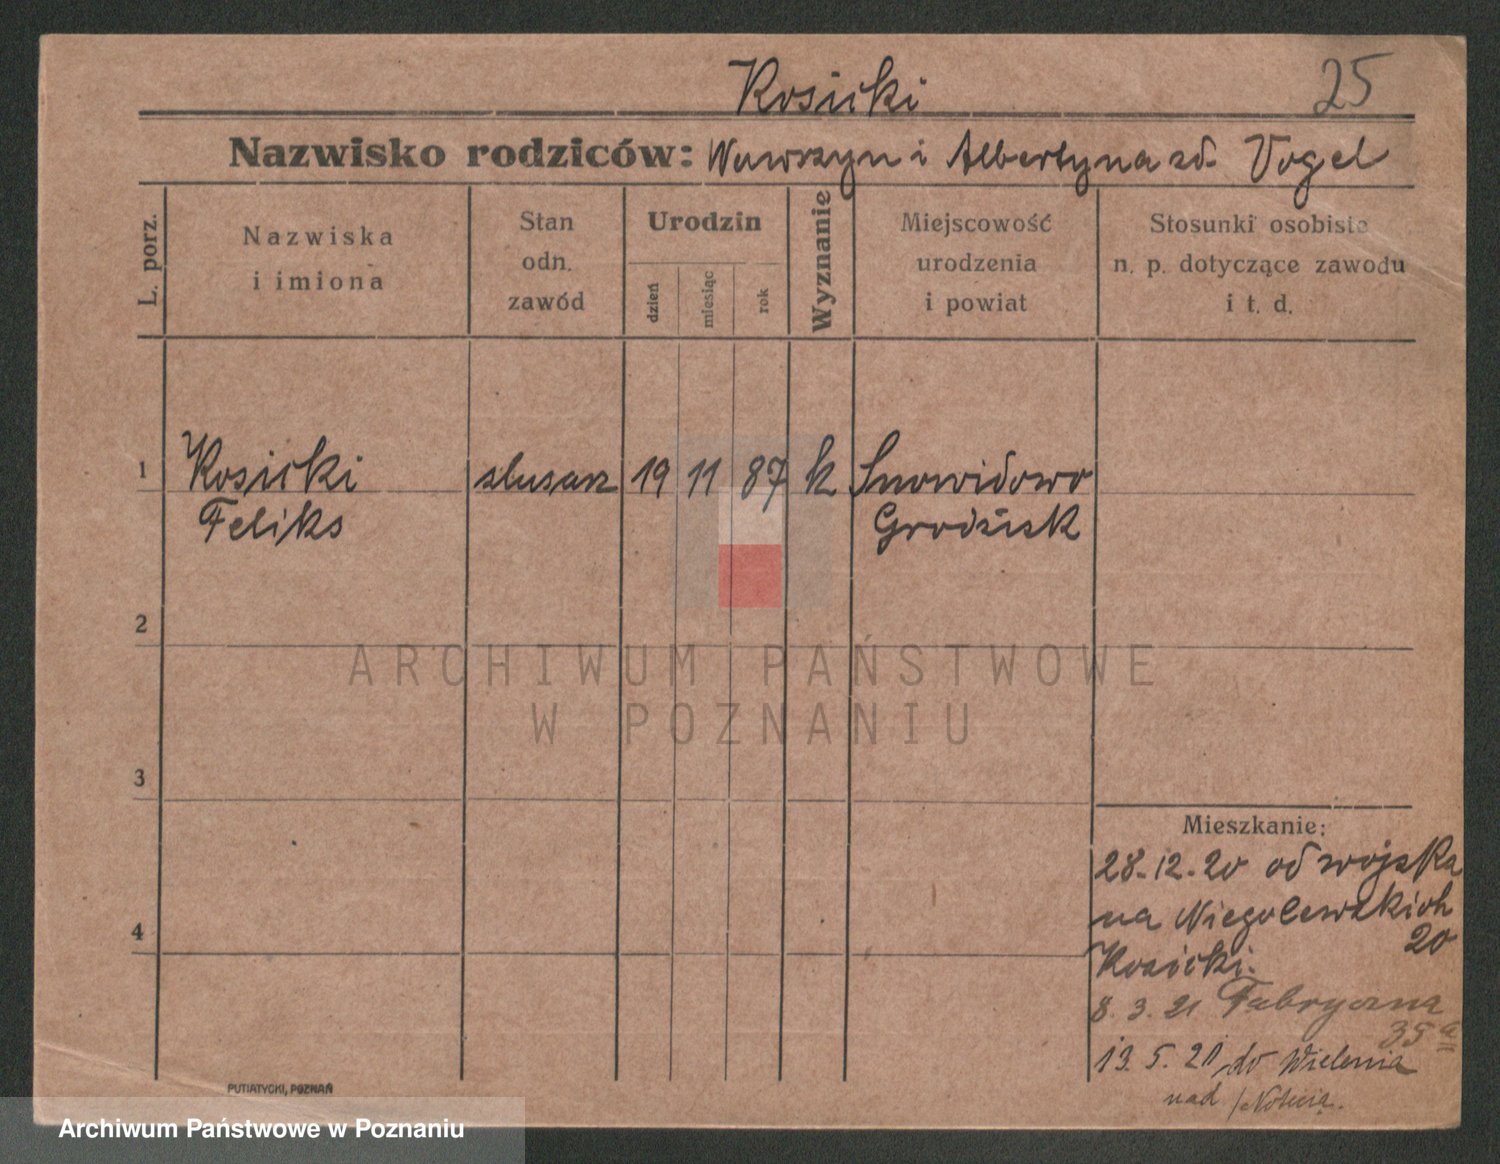 Kosicki
25
Nazwisko rodziców: Wawrzyn i Albertyna zd. Vogel
L. porz.
Nazwiska
i imiona
Stan
odn.
zawód
Urodzin
dzień
miesiąc
rok
Wyznanie
Miejscowość
urodzenia
i powiat
Stosunki osobiste
n. p. dotyczące zawodu
i t. d.
1 Kosicki ślusarz 19 11 87 k Snowidowo
Feliks Grodzisk
2
3
4
Mieszkanie:
28.12.20 od wojska
na Niegolewskich
20
Kosicki.
8. 3. 21 Fabryczna
35a
13. 5. 21 do Wielenia
nad /Notecią.
PUTIATYCKI, POZNAŃ
ARCHIWUM PAŃSTWOWE
W POZNANIU
Archiwum Państwowe w Poznaniu